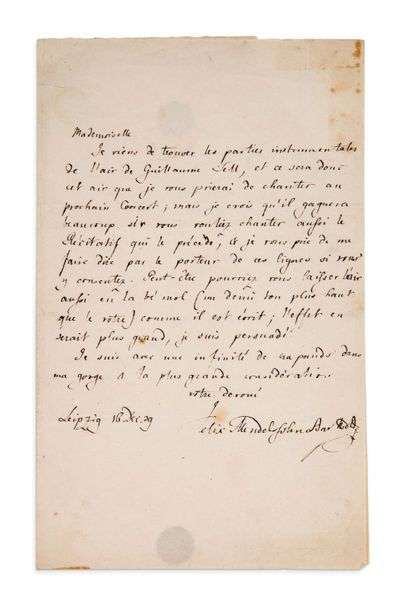 Mademoiselle
Je viens de trouver les parties instrumentales
de l'air de Guillaume Tell, et ce sera donc
cet air que je vous prierai de chanter au
prochain Concert; mais je crois qu'il gagnera
beaucoup si vous vouliez chanter aussi le
Récitatif qui le précède, & je vous prie de me
faire dire par le porteur de ces lignes si vous
y consentez. Peut-être pourriez vous laisser l'air
aussi en la bémol (un demi ton plus haut
que le vôtre) comme il est écrit; l'effet en
serait plus grand, je suis persuadé.
Je suis avec une infinité de crapauds dans
ma gorge & la plus grande considération
votre dévoué
Leipzig 16 Dec. 39
Felix Mendelssohn Bartholdy